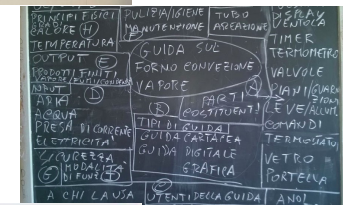 PRINCIPI FISICI
CALORE (H)
TEMPERATURA
OUTPUT (E)
PRODOTTI FINITI
INPUT (D)
ARIA
ACQUA
PRESA DI CORRENTE
ELETTRICITA'
SICUREZZA
MODALITÀ
DI FUNZ.
A CHI LA USA
PULIZIA/IGIENE
MANUTENZIONE
TUBO
AREAZIONE
GUIDA SUL
FORNO CONVEZIONE
VAPORE
(A)
PARTI
COSTITUENTI
(B)
TIPI DI GUIDA
GUIDA CARTACEA
GUIDA DIGITALE
GRAFICA
UTENTI DELLA GUIDA
DISPLAY
VENTOLA
TIMER
TERMOMETRO
VALVOLE
LEVE/ALLUM.
COMANDI
TERMOSTATI
VETRO
PORTELLA